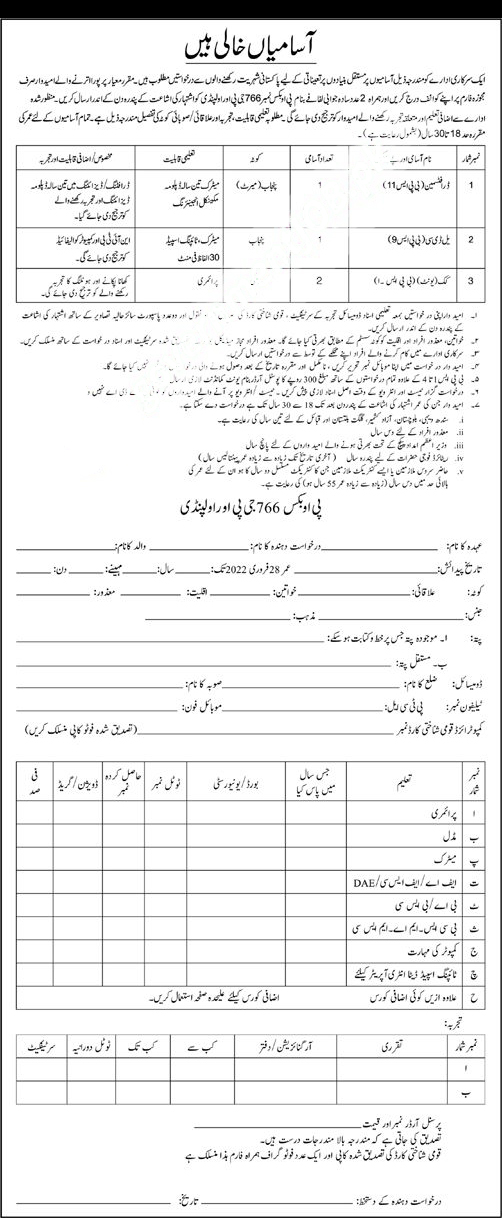 آسامیاں خالی ہیں
ایک سرکاری ادارے کو مندرجہ ذیل آسامیوں پر مستقل بنیادوں پر تعیناتی کے لیے پاکستانی شہریت رکھنے والوں سے درخواستیں مطلوب ہیں۔ مقررہ معیار پر پورا اترنے والے امیدوار صرف
مجوزہ فارم پر اپنے کوائف درج کریں اور ہمراہ 2 عدد سادہ جوابی لفافے بنام پی او بکس نمبر 766 جی پی او راولپنڈی کو اشتہار کی اشاعت کے پندرہ دن کے اندر ارسال کریں۔ منظور شدہ
ادارے سے اضافی تعلیم اور متعلقہ تجربہ رکھنے والے امیدوار کو ترجیح دی جائے گی۔ مطلوبہ تعلیمی قابلیت، تجربہ اور علاقائی / صوبائی کوٹہ کی تفصیل مندرجہ ذیل ہے۔ تمام آسامیوں کے لئے عمر کی
مقررہ حد 18 تا 30 سال (بشمول رعایت ہے)۔
نمبر شمار نام آسامی اور تعداد آسامی کوٹہ تعلیمی قابلیت مخصوص / اضافی قابلیت اور تجربہ
1 ڈرافٹسمین (بی پی ایس 11) 1 پنجاب (میرٹ) میٹرک تین سالہ ڈپلومہ مکینیکل انجینئرنگ ڈرافٹنگ / ڈیزائننگ میں تین سالہ ڈپلومہ ڈیزائننگ اور تجربہ رکھنے والے کو ترجیح دی جائے گیا۔
2 یل ڈی سی (بی پی ایس 9) 1 پنجاب میٹرک، ٹائپنگ اسپیڈ 30 الفاظ فی منٹ این آئی ٹی بی اور کمپیوٹر کوالیفائیڈ کو ترجیح دی جائے گی۔
3 کک (یونٹ) (بی پی ایس ۔ا) 2 پرائمری کھانا پکانے اور ہوٹلنگ کا تجربہ رکھنے والے کو ترجیح دی جائے گی۔
۱۔ امیدوار اپنی درخواستیں بمعہ تعلیمی اسناد ڈومیسائل تجربہ کے سرٹیفکیٹ، قومی شناختی کارڈ کی نقول اور دو عدد پاسپورٹ سائز حالیہ تصاویر کے ساتھ اشتہار کی اشاعت
کے پندرہ دن کے اندر ارسال کریں۔
۲۔ خواتین، معذور افراد اور اقلیت کو کوٹہ سسٹم کے مطابق بھرتی کیا جائے گا۔ معذور افراد مجاز میڈیکل شدہ سرٹیفکیٹ اور درخواست کے ساتھ منسلک کریں۔
۳۔ سرکاری ادارے میں کام کرنے والے افراد اپنے محکمے کے توسط سے درخواستیں ارسال کریں۔
۴۔ امیدوار درخواست میں اپنا موبائل نمبر تحریر کریں، نامکمل اور مقررہ تاریخ کے بعد وصول ہونے والی نہیں کیا جائے گا۔
۵۔ بی پی ایس 1 تا 4 کے علاوہ تمام درخواستوں کے ساتھ مبلغ 300 روپے کا پوسٹل آرڈر بنام یونٹ کمانڈنٹ لازمی ارسال
۶۔ درخواست گزار ٹیسٹ اور انٹرویو کے وقت اصل اسناد لازمی پیش کریں۔ ٹیسٹ / انٹرویو پر آنے والے امیدواروں کو کوئی ڈی اے نہیں
۷۔ امیدوار جن کی عمر اشتہار کی اشاعت کے پندرہ دن بعد تک 18 سے 30 سال تک ہے درخواست دے سکتا ہے۔
i. سندھ دیہی، بلوچستان، آزاد کشمیر، گلگت بلتستان اور قبائل کے لئے تین سال کی رعایت ہے۔
ii. معذور افراد کے لئے دس سال
iii. وزیر اعظم امداد پیکج کے تحت بھرتی ہونے والے امیدواروں کے لئے پانچ سال
iv. ریٹائرڈ فوجی حضرات کے لیے پندرہ سال (آخری تاریخ تک زیادہ سے زیادہ عمر پینتالیس سال)
v. حاضر سروس ملازمین یا ایسے کنٹریکٹ ملازمین جن کا کنٹریکٹ مسلسل دو سال کا ہو ان کے لئے عمر کی
بالائی حد میں دس سال (زیادہ سے زیادہ عمر 55 سال ہو) کی رعایت ہے۔
پی او بکس 766 جی پی او راولپنڈی
عہدہ کا نام: درخواست دہندہ کا نام: والد کا نام:
تاریخ پیدائش: عمر 28 فروری 2022 تک: سال: مہینے: دن:
کوٹہ: علاقائی: خواتین: اقلیت: معذور:
جنس: مذہب:
پتہ: ا۔ موجودہ پتہ جس پر خط و کتابت ہو سکے:
ب۔ مستقل پتہ:
ڈومیسائل: ضلع کا نام: صوبہ کا نام:
ٹیلیفون نمبر: پی ٹی سی ایل: موبائل فون:
کمپیوٹرائزڈ قومی شناختی کارڈ نمبر (تصدیق شدہ فوٹو کاپی منسلک کریں)
نمبر شمار تعلیم جس سال میں پاس کیا بورڈ / یونیورسٹی ٹوٹل نمبر حاصل کردہ نمبر ڈویژن / گریڈ فی صد
ا پرائمری
ب مڈل
پ میٹرک
ت ایف اے / ایف ایس سی / DAE
ٹ بی اے / بی ایس سی
ث بی سی ایس۔ ایم اے۔ ایم ایس سی
ج کمپیوٹر کی مہارت
چ ٹائپنگ اسپیڈ ڈیٹا انٹری آپریٹر کیلئے
ح علاوہ ازیں کوئی اضافی کورس اضافی کورس کیلئے علیحدہ صفحہ استعمال کریں۔
تجربہ:
نمبر شمار تقرری آرگنائزیشن / دفتر کب سے کب تک ٹوٹل دورانیہ سرٹیفکیٹ
ا
ب
پرسنل آرڈر نمبر اور قیمت
تصدیق کی جاتی ہے کہ مندرجہ بالا مندرجات درست ہیں۔
قومی شناختی کارڈ کی تصدیق شدہ کاپی اور ایک عدد فوٹو گراف ہمراہ فارم ہذا منسلک ہے
درخواست دہندہ کے دستخط: تاریخ: